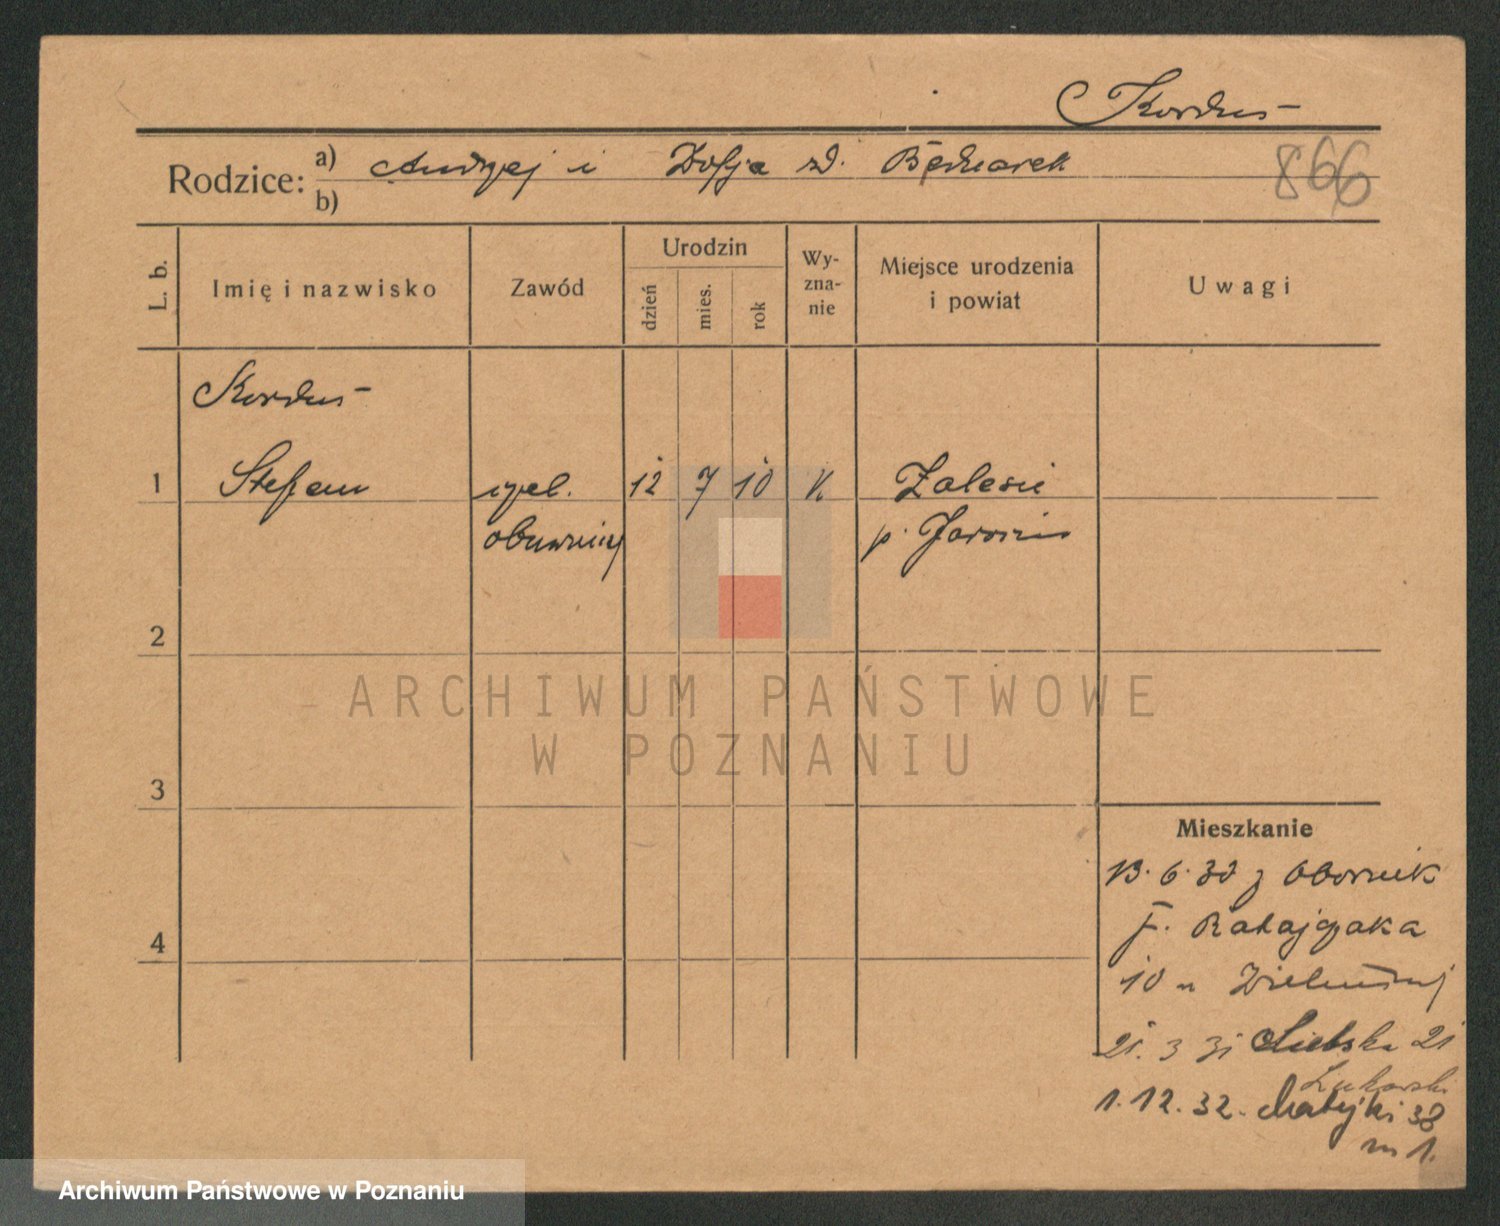 Korduś
Rodzice: a) Andrzej i Zofja zd. Bednarek
b)
866
L. b.
Imię i nazwisko
Zawód
Urodzin
dzień
mies.
rok
Wy-
zna-
nie
Miejsce urodzenia
i powiat
Uwagi
Korduś
1 Stefan czel. 12 7 10 K Zalesie
obuwniczy p. Jarocin
2
3
4
Mieszkanie
13. 6. 30 z Obornik
F. Ratajczaka
10 u
21. 3 31 21
1. 12. 32. Matejki 38
m 1.
ARCHIWUM PAŃSTWOWE
W POZNANIU
Archiwum Państwowe w Poznaniu